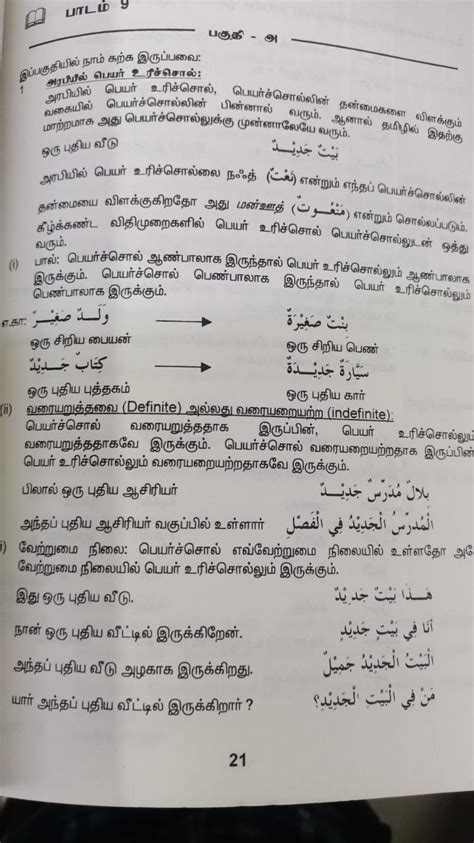 பாடம் 9
பகுதி - அ
இப்பகுதியில் நாம் கற்க இருப்பவை:
1 அரபியில் பெயர் உரிச்சொல்:
அரபியில் பெயர் உரிச்சொல், பெயர்ச்சொல்லின் தன்மைகளை விளக்கும்
வகையில் பெயர்ச்சொல்லின் பின்னால் வரும். ஆனால் தமிழில் இதற்கு
மாற்றமாக அது பெயர்ச்சொல்லுக்கு முன்னாலேயே வரும்.
ஒரு புதிய வீடு بَيْتٌ جَدِيـــدٌ
அரபியில் பெயர் உரிச்சொல்லை நஃத் (نَعْتٌ) என்றும் எந்தப் பெயர்ச்சொல்லின்
தன்மையை விளக்குகிறதோ அது மன்ஊத் (مَنْعُــوتٌ) என்றும் சொல்லப்படும்.
கீழ்க்கண்ட விதிமுறைகளில் பெயர் உரிச்சொல் பெயர்ச்சொல்லுடன் ஒத்து
வரும்.
(i) பால்: பெயர்ச்சொல் ஆண்பாலாக இருந்தால் பெயர் உரிச்சொல்லும் ஆண்பாலாக
இருக்கும். பெயர்ச்சொல் பெண்பாலாக இருந்தால் பெயர் உரிச்சொல்லும்
பெண்பாலாக இருக்கும்.
எ.கா: وَلَــدٌ صَغِيْــرٌ → بِنْتٌ صَغِيْرَةٌ
ஒரு சிறிய பையன் ஒரு சிறிய பெண்
كِتَابٌ جَــدِيْدٌ → سَيَّارَةٌ جَدِيْــدَةٌ
ஒரு புதிய புத்தகம் ஒரு புதிய கார்
(ii) வரையறுத்தவை (Definite) அல்லது வரையறையற்ற (indefinite):
பெயர்ச்சொல் வரையறுத்ததாக இருப்பின், பெயர் உரிச்சொல்லும்
வரையறுத்ததாகவே இருக்கும். பெயர்ச்சொல் வரையறையற்றதாக இருப்பின்
பெயர் உரிச்சொல்லும் வரையறையற்றதாகவே இருக்கும்.
பிலால் ஒரு புதிய ஆசிரியர் بِلالٌ مُدَرِّسٌ جَدِيْــدٌ
அந்தப் புதிய ஆசிரியர் வகுப்பில் உள்ளார் اَلْمُدَرِّسُ الْجَدِيْدُ فِي الْفَصْلِ
வேற்றுமை நிலை: பெயர்ச்சொல் எவ்வேற்றுமை நிலையில் உள்ளதோ அதே
வேற்றுமை நிலையில் பெயர் உரிச்சொல்லும் இருக்கும்.
இது ஒரு புதிய வீடு. هَــذَا بَيْتٌ جَدِيْدٌ
நான் ஒரு புதிய வீட்டில் இருக்கிறேன். أَنَا فِي بَيْتٍ جَدِيْدٍ
அந்தப் புதிய வீடு அழகாக இருக்கிறது. اَلْبَيْتُ الْجَدِيْدُ جَمِيْلٌ
யார் அந்தப் புதிய வீட்டில் இருக்கிறார் ? مَنْ فِي الْبَيْتِ الْجَدِيْدِ؟
21